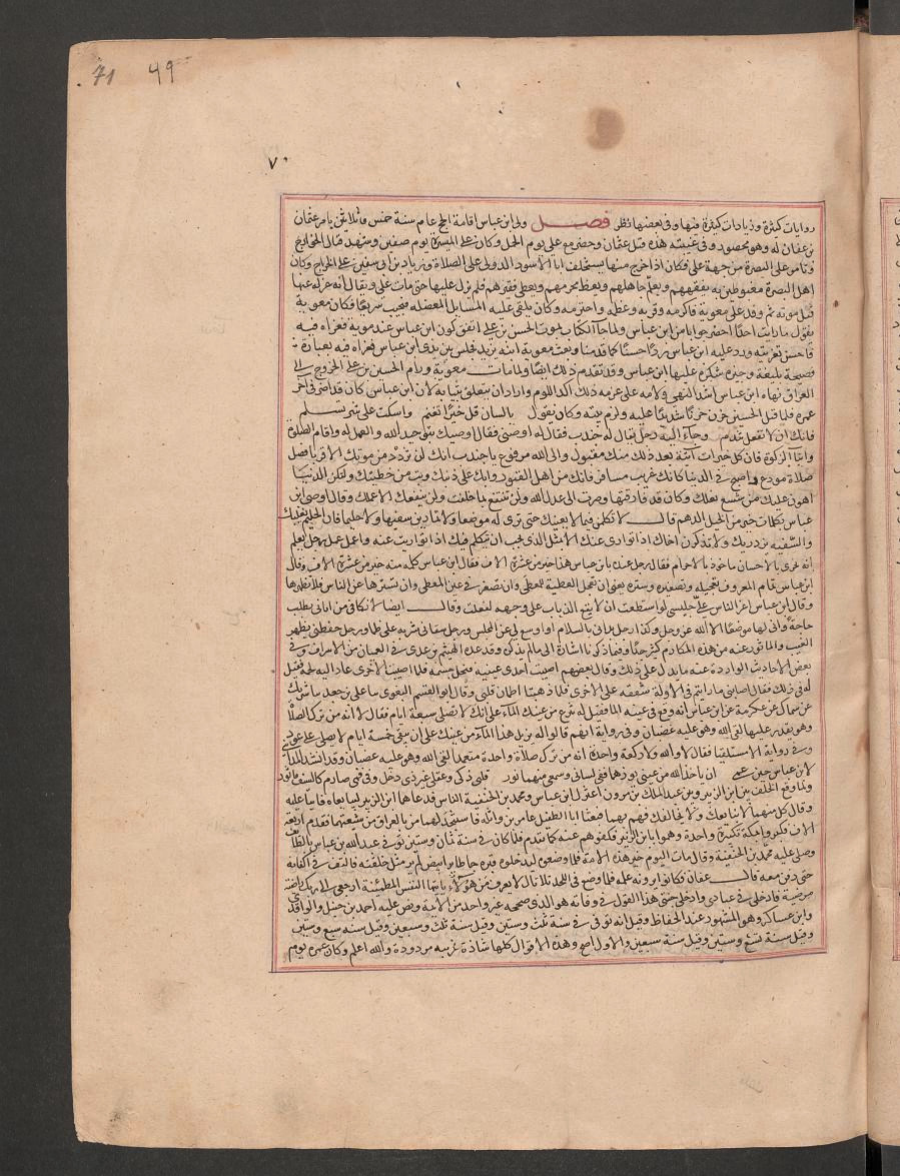 71 49
٧٠
روايات كثيرة وزيادات كثيرة فيها وفي بعضها نظر فصل ولى ابن عباس اقامة الحج عام سنة خمس وثلاثين بامر عثمان
بن عفان له وهو محصور وفي غيبته هذه قتل عثمان وحضر مع علي يوم الجمل وكان على الميسرة يوم صفين وشهد قتال الخوارج
وتامر على البصرة من جهة علي فكان اذا خرج منها يستخلف ابا الاسود الدولي على الصلاة وزياد بن ابي سفين على الخراج وكان
اهل البصرة مغبوطين به يفقههم ويعلم جاهلهم ويعظ مجرمهم ويعطي فقيرهم فلم يزل عليها حتى مات علي ويقال انه عزله عنها
قبل موته ثم وفد على معوية فاكرمه وقربه وعظمه واحترمه وكان يلقي عليه المسايل المعضله فيجيب سريعا فكان معوية
يقول ما رايت احدا احضر جوابا من ابن عباس ولما جا الكتاب بموت الحسن بن علي اتفق كون ابن عباس عند معوية فعزاه فيه
فاحسن تعزيته ورد عليه ابن عباس ردا حسنا كما قدمنا وبعث معوية ابنه يزيد فجلس بين يدي ابن عباس فعزاه فيه بعبارة
فصيحة بليغة وجيزة شكره عليها ابن عباس وقد تقدم ذلك ايضا ولما مات معوية ورام الحسين بن علي الخروج الى
العراق نهاه ابن عباس اشد النهي ولامه على عزمه ذلك اكد اللوم واراد ان يتعلق بثيابه لان ابن عباس كان قد اضر في آخر
عمره فلما قتل الحسين حزن حزنا شديدا عليه ولزم بيته وكان يقول يا لسان قل خيرا تغنم واسكت على شر تسلم
فانك ان لا تفعل تندم وجاء اليه رجل يقال له جندب فقال له اوصني فقال اوصيك بتوحيد الله والعمل له واقام الصلاة
وايتا الزكوة فان كل خير انت آتيه بعد ذلك منك مقبول والى الله مرفوع يا جندب انك لن تزدد من موتك الا قربا فصل
صلاة مودع واصبح في الدنيا كانك غريب مسافر فانك من اهل القبور وابك على ذنبك وتب من خطيئتك ولتكن الدنيا
اهون عليك من شسع نعلك وكان قد فارقتها وصرت الى عدل الله ولن تنتفع بما خلفت ولن ينفعك الا عملك وقال اوصى ابن
عباس بكلمات خير من الخيل الدهم قال لا تكلمن فيما لا يعنيك حتى ترى له موضعا ولا تمارين سفيها ولا حليما فان الحليم يغلبك
والسفيه يزدريك ولا تذكرن اخاك اذا توارى عنك الا بمثل الذي يحب ان تتكلم فيك اذا تواريت عنه واعمل عمل رجل يعلم
انه مجزى بالاحسان ماخوذ بالاجرام فقال رجل عنده يابن عباس هذا خير من عشرة الاف فقال ابن عباس كلمة منه خير من عشرة الاف وقال
ابن عباس تمام المعروف تعجيله وتصغيره وستره يعني ان تعجل العطية للمعطى وان تصغر في عين المعطي وان تسترها عن الناس فلا تظهرها
وقال ابن عباس اعز الناس علي جليسي لو استطعت ان لا يقع الذباب على وجهه لفعلت وقال ايضا لا يكافي من اتاني يطلب
حاجة وراني لها موضعا الا الله عز وجل وكذا رجل بداني بالسلام او اوسع لي عن المجلس ورجل سقاني شربة على ظما ورجل حفظني بظهر
الغيب والماثور عنه من هذه المكارم كثير جدا وفيما ذكرنا اشارة الى ما لم نذكره وقد عده الهيثم بن عدي في العميان من الاشراف وفي
بعض الاحاديث الواردة عنه ما يدل على ذلك وقال بعضهم اصيبت احدى عينيه فنحل جسمه فلما اصيبت الاخرى عاد اليه لحمه فقيل
له في ذلك فقال اصابني ما رايتم في الاولة شفقة على الاخرى فلما ذهبتا اطمان قلبي وقال ابو القسم البغوي ما علي بن جعد ما شريك
عن سماك عن عكرمة عن ابن عباس انه وقع في عينه الما فقيل له ننزع من عينك الماء على انك لا تصلي سبعة ايام فقال لا انه من ترك الصلاة
وهو يقدر عليها لقي الله وهو عليه غضبان وفي رواية انهم قالوا له نزيل هذا الماء من عينك على ان تبقى خمسة ايام لا تصلي على عود
وفي رواية الا مستلقيا فقال لا والله ولا ركعة واحدة انه من ترك صلاة واحدة متعمدا لقي الله وهو عليه غضبان وقد انشد المدايني
لابن عباس حين عمي ان ياخذ الله من عيني نورهما ففي لساني وسمعي منهما نور قلبي ذكي وعقلي غير ذي دخل وفي فمي صارم كالسيف ماثور
ولما وقع الخلف بين ابن الزبير وبين عبد الملك بن مروان اعتزل ابن عباس ومحمد بن الحنفية الناس فدعاهما ابن الزبير ليبايعاه فابيا عليه
وقال كل منهما لا نبايعك ولا نخالفك فهم بهما فبعثا ابا الطفيل عامر بن واثلة فاستنجد لهما من بالعراق من شيعتهما فقدم اربعة
الاف فكبروا بمكة تكبيرة واحدة وهموا بابن الزبير فكفوهم عنه كما تقدم فلما كان في سنة ثمان وستين توفي عبد الله بن عباس بالطائف
وصلى عليه محمد بن الحنفية وقال مات اليوم حبر هذه الامة فلما وضعوه ليدخلوه قبره جا طاير ابيض لم ير مثل خلقته فالتف في اكفانه
حتى دفن معه قال عفان فكانوا يرونه علمه فلما وضع في اللحد تلا تال لا يعرف من هو يا ايتها النفس المطمئنة ارجعي الى ربك راضية
مرضية فادخلي في عبادي وادخلي جنتي هذا القول في وفاته هو الذي صححه غير واحد من الائمة ونص عليه احمد بن حنبل والواقدي
وابن عساكر وهو المشهور عند الحفاظ وقيل انه توفي في سنة ثلث وستين وقيل سنة ثلث وسبعين وقيل سنة سبع وستين
وقيل سنة تسع وستين وقيل سنة سبعين والاول اصح وهذه الاقوال كلها شاذة غريبه مردودة والله اعلم وكان عمره يوم